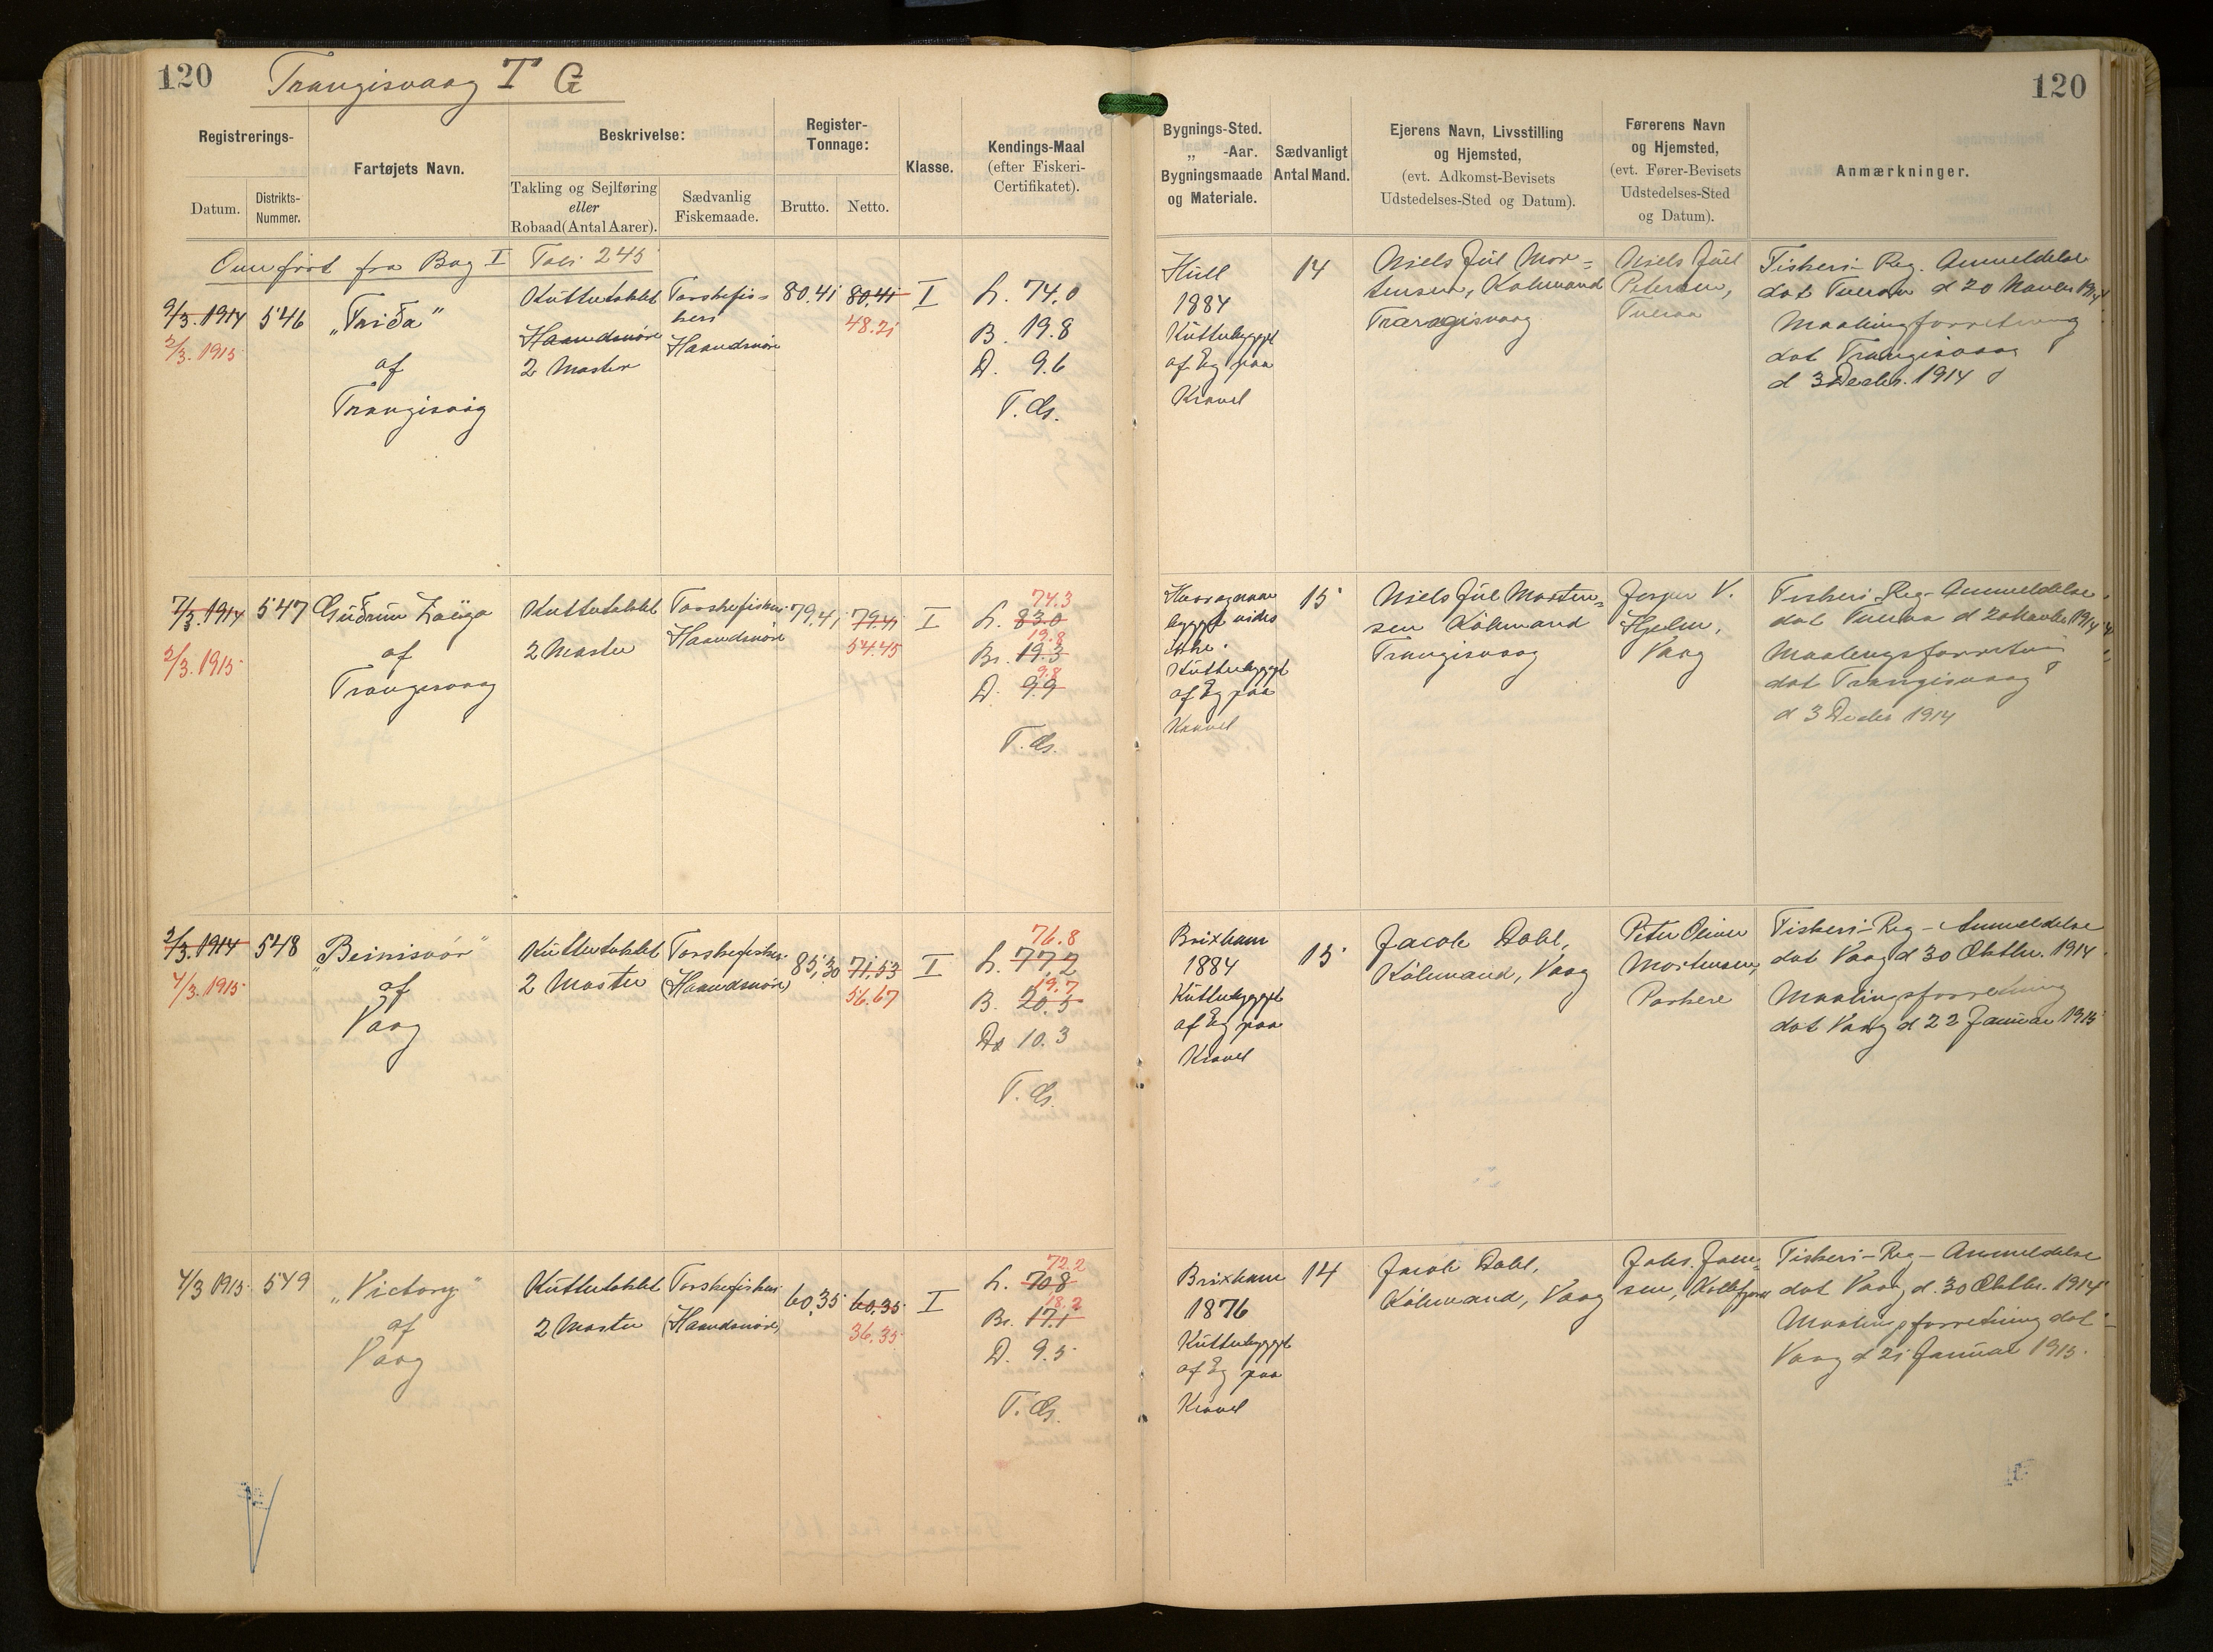 120
Trangisvaag T G
120
Registrerings-
Datum.
Distrikts-
Nummer.
Fartøjets Navn.
Beskrivelse:
Takling og Sejlføring
eller
Robaad (Antal Aarer).
Sædvanlig
Fiskemaade.
Register-
Tonnage:
Brutto.
Netto.
Klasse.
Kendings-Maal
(efter Fiskeri-
Certifikatet).
Bygnings-Sted.
„ -Aar.
Bygningsmaade
og Materiale.
Sædvanligt
Antal Mand.
Ejerens Navn, Livsstilling
og Hjemsted,
(evt. Adkomst-Bevisets
Udstedelses-Sted og Datum).
Førerens Navn
og Hjemsted,
(evt. Fører-Bevisets
Udstedelses-Sted
og Datum).
Anmærkninger.
fra Bog I
245
2/3. 1914
2/3. 1915
546
af
Kuttertaklet
Haandsnøre
2 Master
Torskefis-
keri
Haandsnøre
80.41
80.41
48.21
I
L. 74.0
B. 19.8
D. 9.6
Hull
1884
Kutterbygget
af Eg paa
Kravel
14
Niels Júl Mor-
tensen, Købmand
Trangisvaag
Niels Júl
Petersen,
Fiskeri-Reg. Anmeldelse
dat d 20 1914
Maalingforretning
dat Trangisvaag
d 3 Decbr. 1914
2/3. 1914
2/3. 1915
547
af
Trangisvaag
Kuttertaklet
2 Master
Torskefiskeri
Haandsnøre
79.41
79.41
54.45
I
74.3
L. 83.0
19.8
Br. 19.3
9.8
D. 9.9
bygget vides
ikke.
Kutterbygget
af Eg paa
Kravel
15
Niels Júl Morten-
sen Købmand
Trangisvaag
V.
Hjelm,
Vaag
Fiskeri-Reg-Anmeldelse
dat d 20 1914
Maalingsforretning
dat Trangisvaag
d 3 Decbr 1914
2/3. 1914
4/3. 1915
548
af
Vaag
Kuttertaklet
2 Master
Torskefiskeri
(Haandsnøre)
85,30
71,53
56.67
I
76.8
L. 77,2
19.7
B. 20.5
D. 10.3
Brixham
1884
Kutterbygget
af Eg paa
Kravel
15
Jacob Dahl,
Købmand, Vaag
Peter Oliver
Mortensen,
Porkere
Fiskeri-Reg-Anmeldelse
dat Vaag d 30 Oktbr. 1914
Maalingsforretning
dat Vaag d 22 Januar 1915
4/3 1915
549
„Victory"
af
Vaag
Kuttertaklet
2 Master
Torskefiskeri
(Haandsnøre)
60,35
60.35
36.35
I
72.2
L. 70.8
18.2
Br. 17.1
D. 9.5
Brixham
1876
Kutterbygget
af Eg paa
Kravel
14
Jacob Dahl,
Købmand, Vaag
Johs. Joen-
sen, Kollefjord
Fiskeri-Reg-Anmeldelse
dat Vaag d. 30 Oktbr. 1914
Maalingsforretning dat
Vaag d 21 Januar 1915.